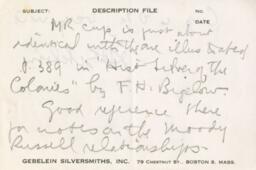 SUBJECT: DESCRIPTION FILE NO.
DATE
MR cup is just about
identical with those illus & dated
p. 389 in "Hist Silver of the
Colonies" by F. H. Bigelow.
Good reference there
for notes on the Moody
Russell relationships.
GEBELEIN SILVERSMITHS, INC. 79 CHESTNUT ST., BOSTON 8, MASS.